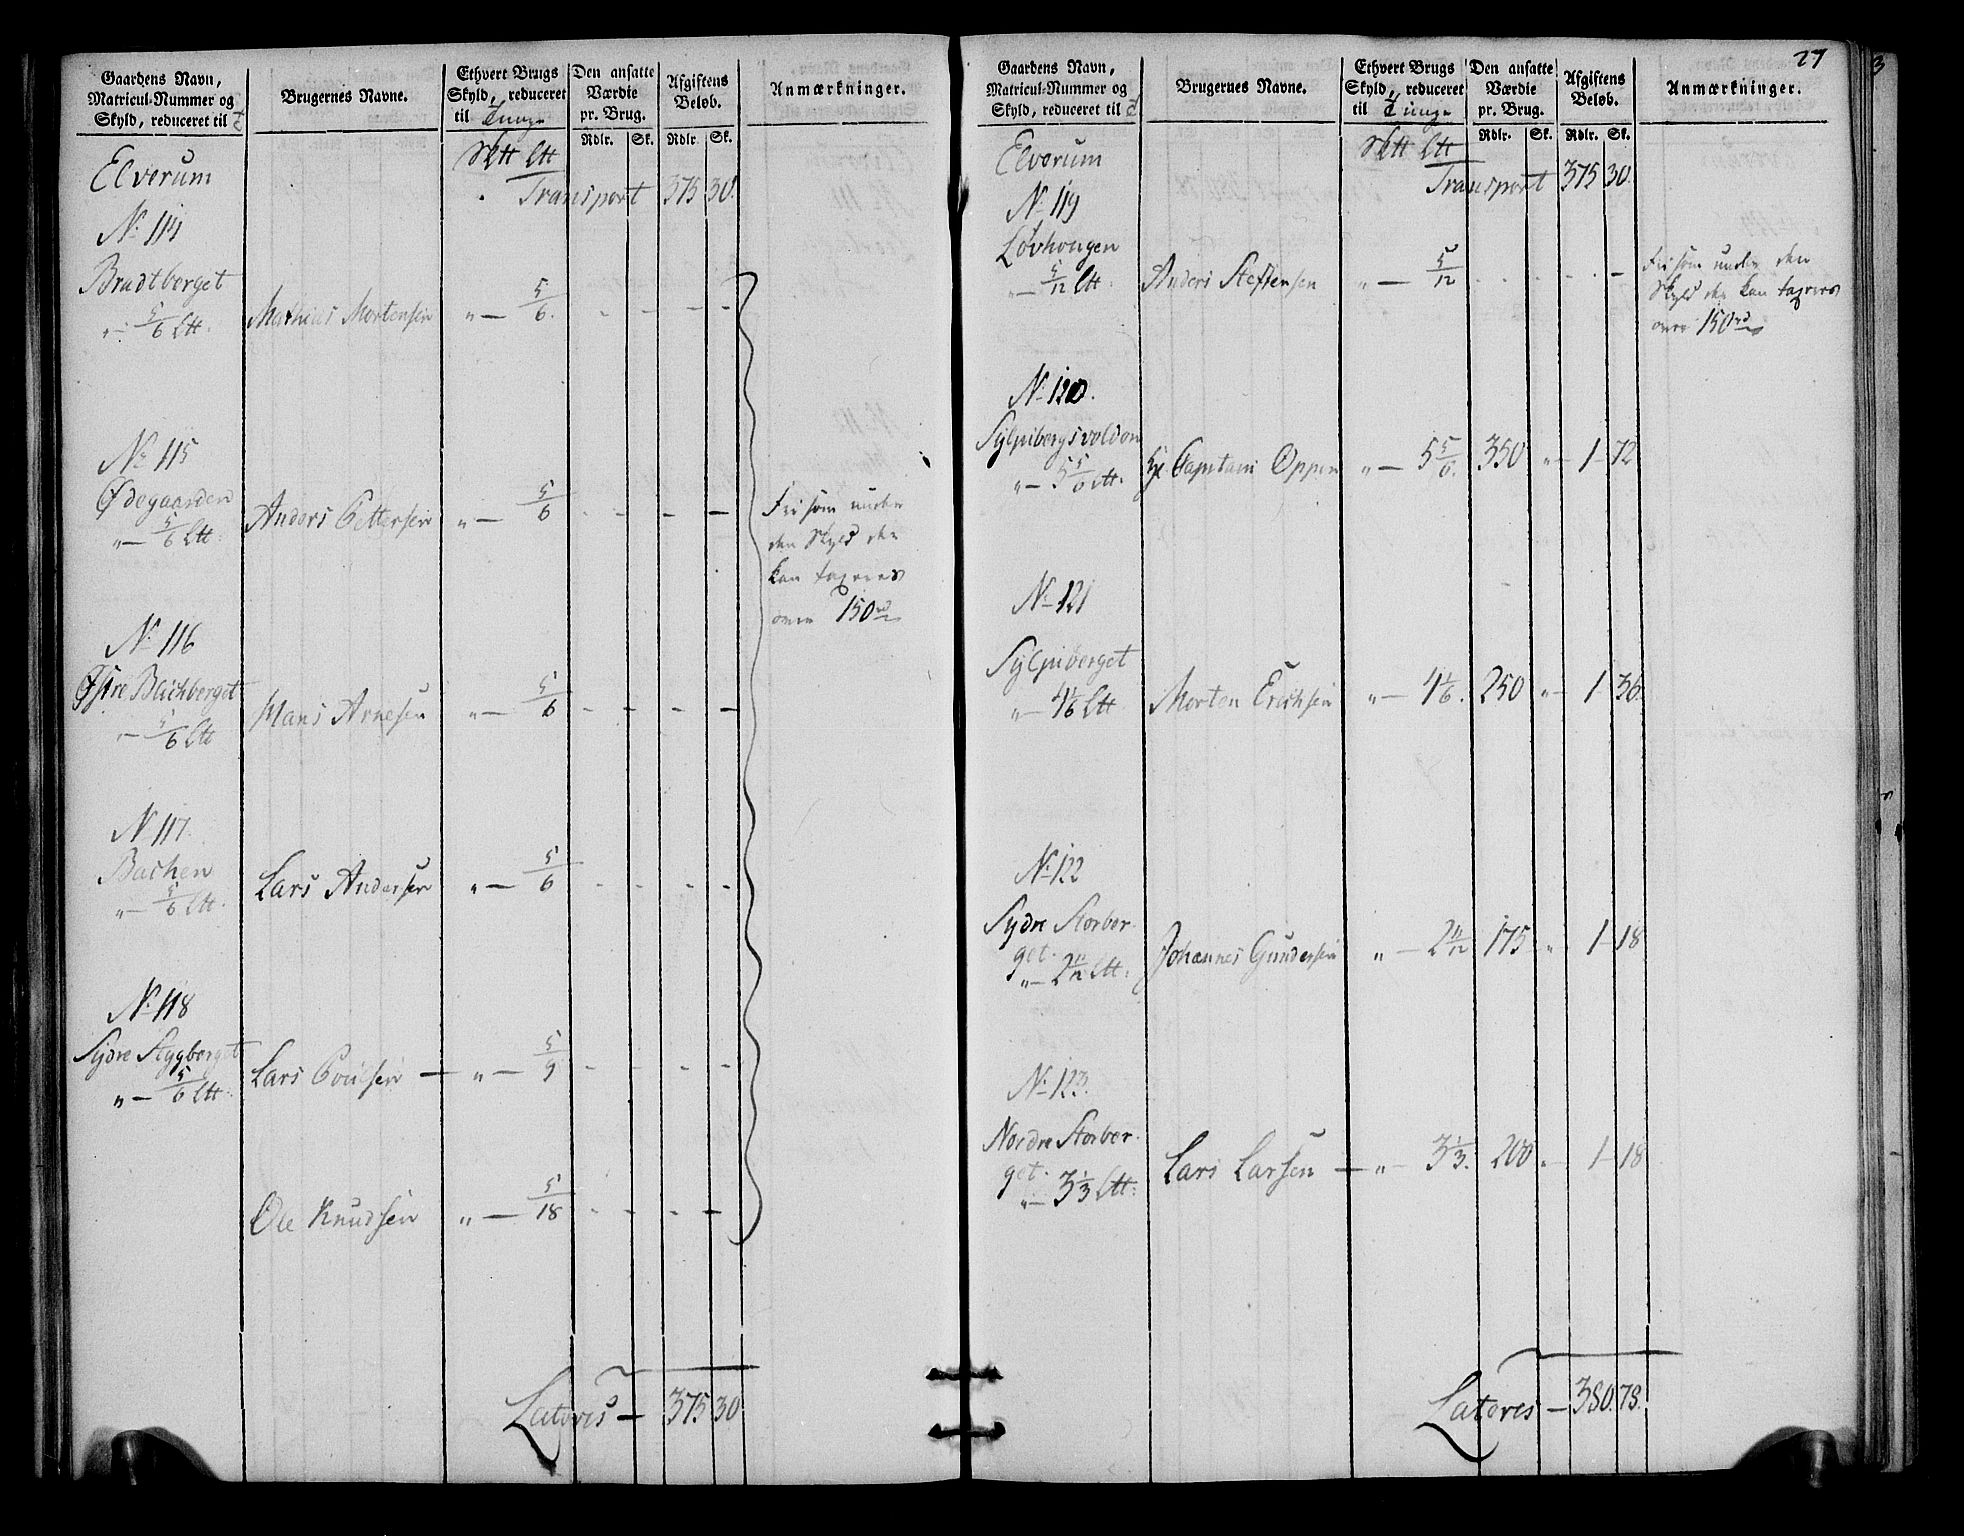 Gaardens Navn,
Matricul-Nummer og
Skyld, reduceret til
Brugernes Navne.
Ethvert Brugs
Skyld, reduceret
til Tunge
Den ansatte
Værdie
pr. Brug.
Rdlr. Sk.
Afgiftens
Beløb.
Rdlr. Sk.
Anmærkninger.
Elverum
Transport 375 30.
No 114
Bradtberget
"- 5/6 Ltt. Mathias Mortensen " — 5/6. - - - -
No 115
Ødegaarden
"— 5/6 Ltt. Anders Pettersen " — 5/6 - - - -
Fri som under
den Skyld der
kan taxeres
over 150 rd
No 116
Østre Blichberget
"- 5/6 Ltt Hans Arnesen " — 5/6 - - - -
No 117.
Bachen
"— 5/6 Ltt. Lars Andersen " — 5/6 - - - -
No 118
Sydre Styggberget
" — 5/6 Ltt. Lars — " — 5/9 - - - -
Ole Knudsen " — 5/18 - - - -
Latoris — 375 30
27
Gaardens Navn,
Matricul-Nummer og
Skyld, reduceret til
Brugernes Navne.
Ethvert Brugs
Skyld, reduceret
til Tunge
Den ansatte
Værdie
pr. Brug.
Rdlr. Sk.
Afgiftens
Beløb.
Rdlr. Sk.
Anmærkninger.
Elverum
Transport 375 30.
No 119
Løvhougen
"— 5/12 Ltt. Anders Steffensen " — 5/12 - - - -
Fri som under den
Skyld der kan taxeres
over 150 rd
No 120.
"— 5 5/6 Ltt. Capitain Oppen " — 5 5/6. 350 " — 1 — 72
No 121
"— 4 1/6 Ltt Morten Erichsen " — 4 1/6. 250 " — 1 — 36.
No 122
Sydre Storber-
get.
"— 2 11/12 Ltt. Johannes Gundersen " — 2 11/12 175 " 1 — 18
No 123.
Nordre Storber-
get.
"— 3 1/3 Ltt. Lars Larsen — " — 3 1/3. 200 " 1 — 18
Latoris — 380. 78.